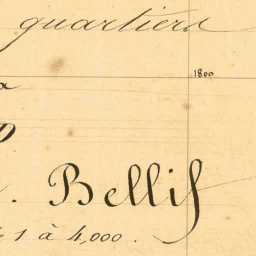 quartiers
1800
. Bellis
1 à 4,000.